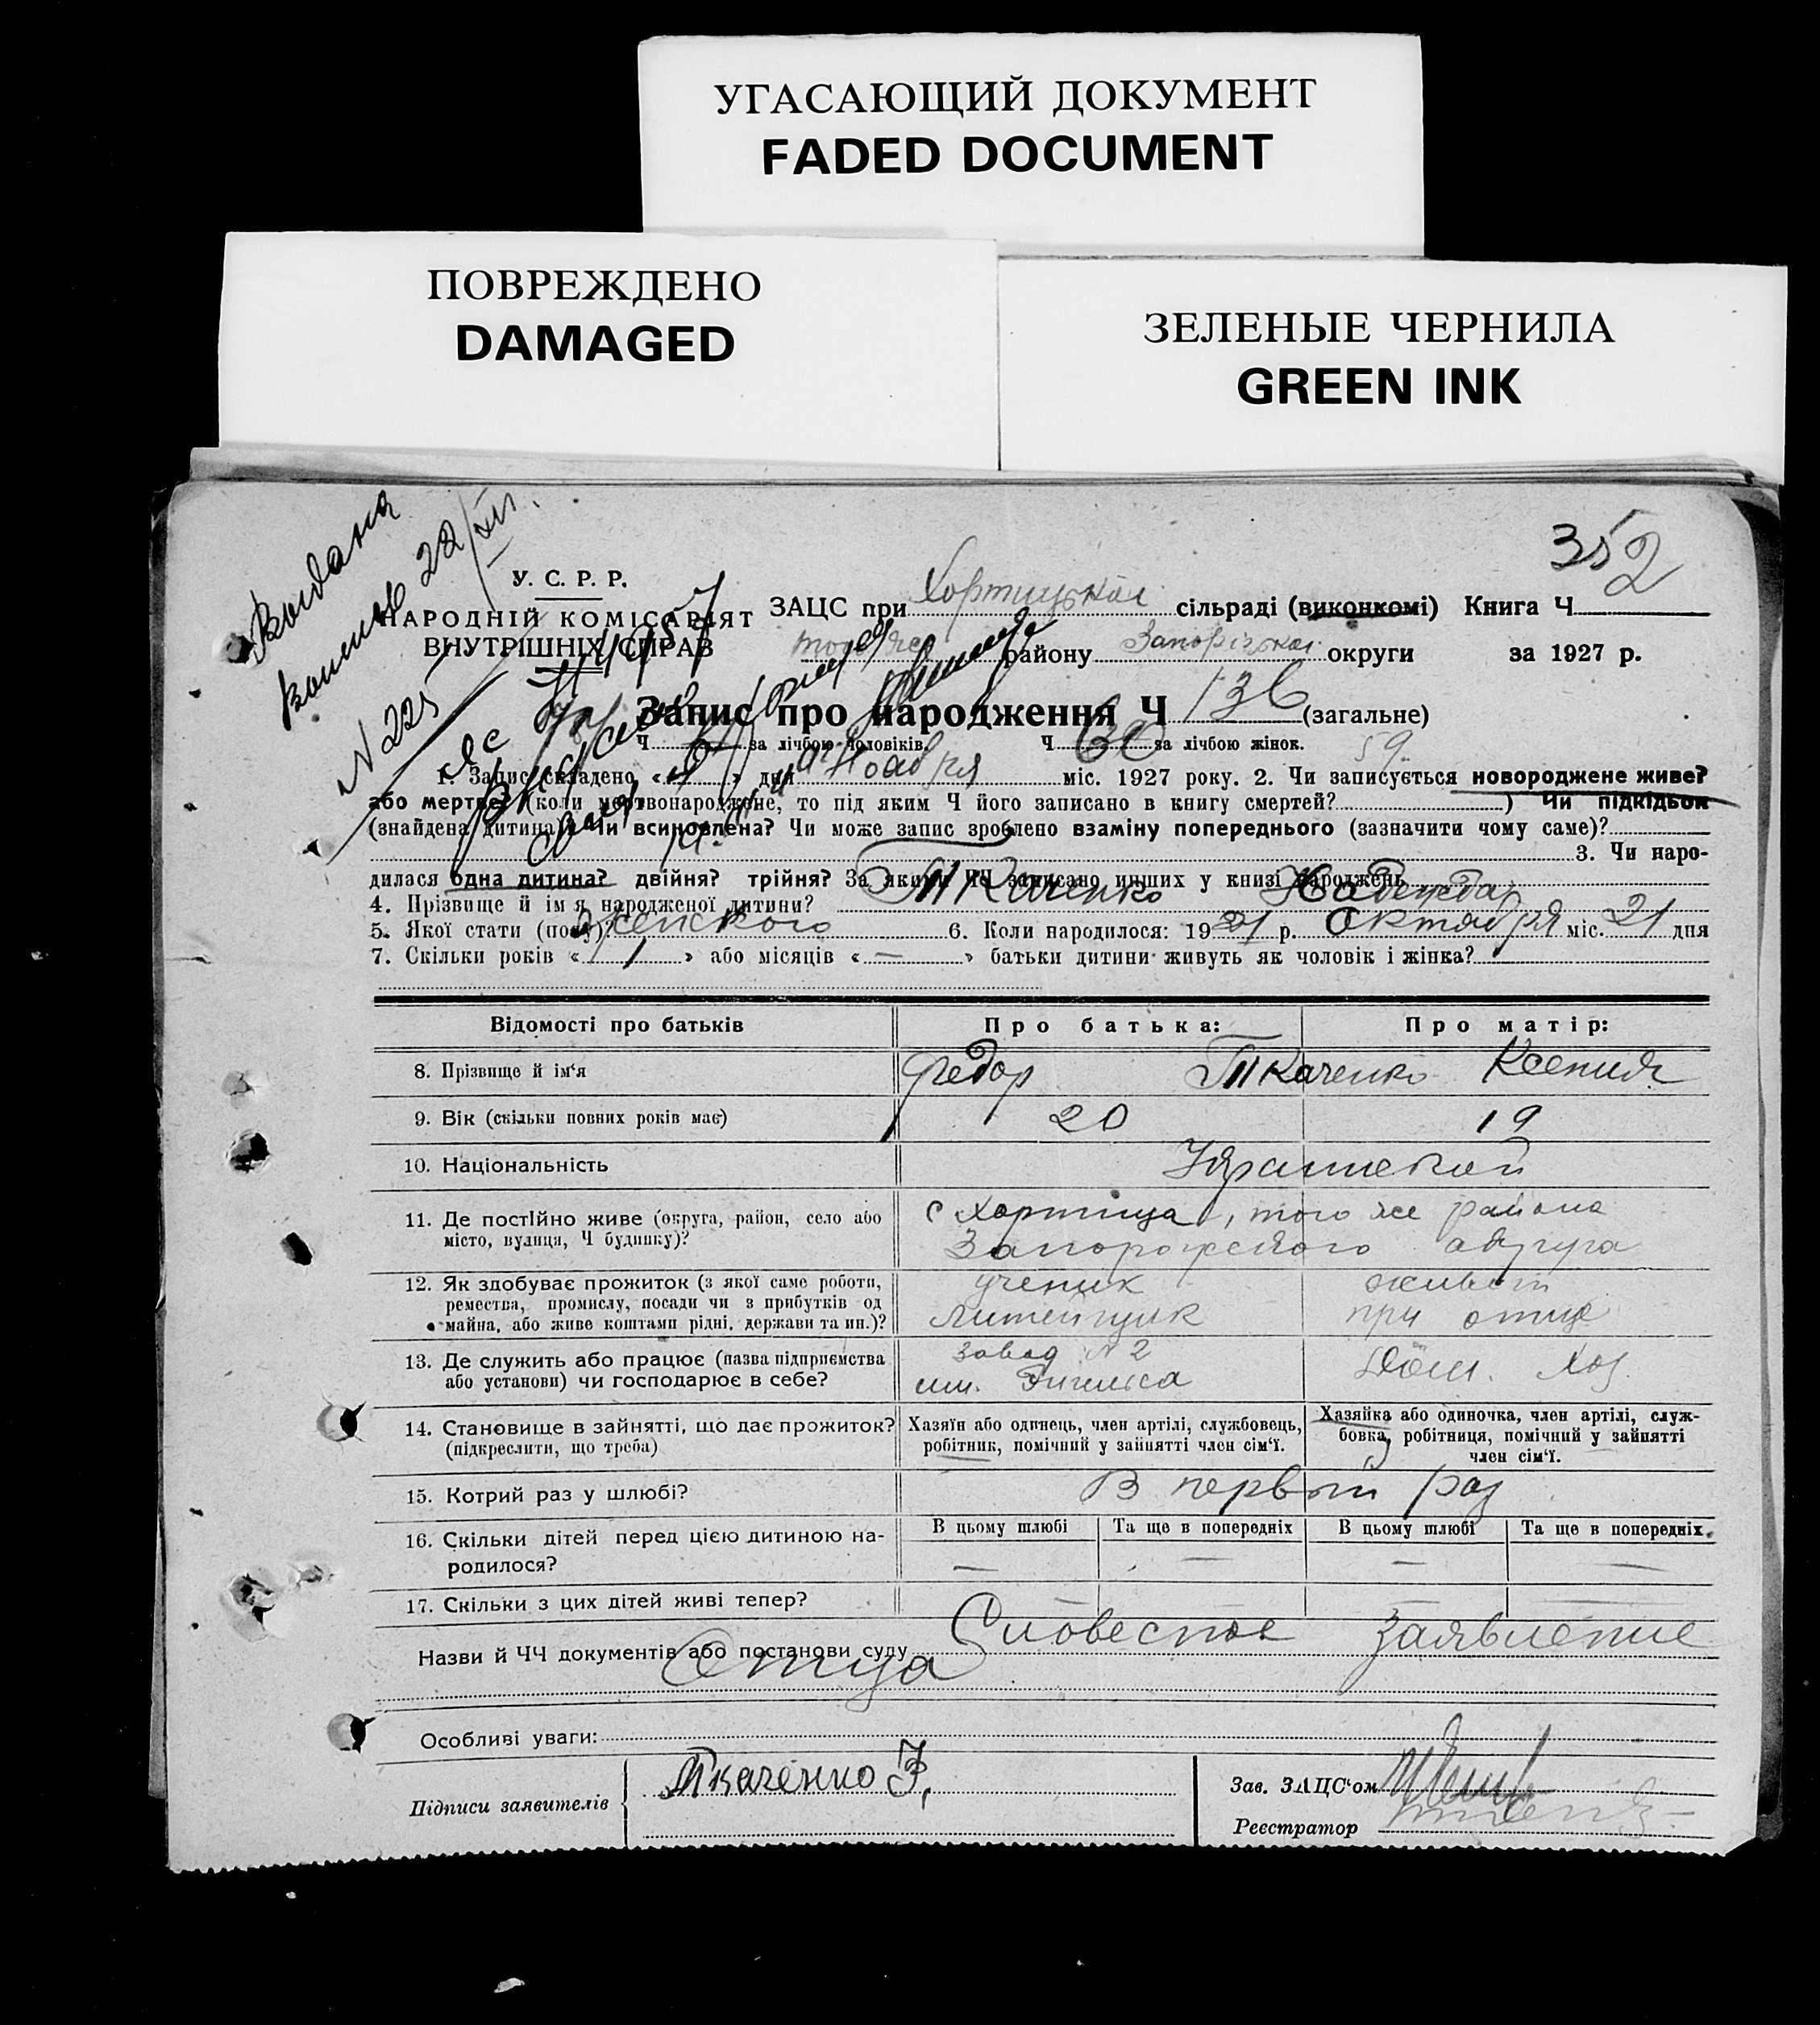 УГАСАЮЩИЙ ДОКУМЕНТ
FADED DOCUMENT
ПОВРЕЖДЕНО
DAMAGED
ЗЕЛЕНЫЕ ЧЕРНИЛА
GREEN INK
352
22/XII.
N 225
У. С. Р. Р.
НАРОДНІЙ КОМІСАРІЯТ
ВНУТРІШНІХ СПРАВ
ЗАЦС при Хортицькой сільраді (виконкомі) Книга Ч
того же району Запорізькой округи за 1927 р.
Запис про народження Ч 136 (загальне)
Ч за лічбою чоловіків. Ч за лічбою жінок. 59.
1. Запис складено « » дня Ноября міс. 1927 року. 2. Чи записується новороджене живе?
або мертве? (коли мертвонароджене, то під яким Ч його записано в книгу смертей? ) Чи підкідьок
(знайдена дитина)? Чи всиновлена? Чи може запис зроблено взаміну попереднього (зазначити чому саме)?
3. Чи наро-
дилася одна дитина? двійня? трійня? За якими ЧЧ записано инших у книзі народжень
4. Прізвище й ім'я народженої дитини? Ткаченко Надежда
5. Якої стати (полу) женского 6. Коли народилося: 19 р. Октября міс. 21 дня
7. Скільки років « 1 » або місяців « — » батьки дитини живуть як чоловік і жінка?
Відомості про батьків Про батька: Про матір:
8. Прізвище й ім'я Федор Ткаченко Ксения
9. Вік (скільки повних років має) 20 19
10. Національність
11. Де постійно живе (округа, район, село або
місто, вулиця, Ч будинку)?
с Хортица, того же района
Запорожского округа
12. Як здобуває прожиток (з якої саме роботи,
ремества, промислу, посади чи з прибутків од
майна, або живе коштами рідні, держави та ин.)?
ученик
литейщик
живет
при отце
13. Де служить або працює (назва підприємства
або установи) чи господарює в себе?
завод N 2
им. Энгельса
Дом. Хоз.
14. Становище в зайнятті, що дає прожиток?
(підкреслити, що треба)
Хазяїн або одинець, член артілі, службовець,
робітник, помічний у зайнятті член сім'ї.
Хазяйка або одиночка, член артілі, служ-
бовка, робітниця, помічний у зайнятті
член сім'ї.
15. Котрий раз у шлюбі? В первый раз
16. Скільки дітей перед цією дитиною на-
родилося?
В цьому шлюбі Та ще в попередніх В цьому шлюбі Та ще в попередніх.
— — — —
17. Скільки з цих дітей живі тепер? — — — —
Назви й ЧЧ документів або постанови суду Словесное Заявление
Отца
Особливі уваги:
Підписи заявителів Ткаченко Ф,
Зав. ЗАЦС'ом
Реєстратор